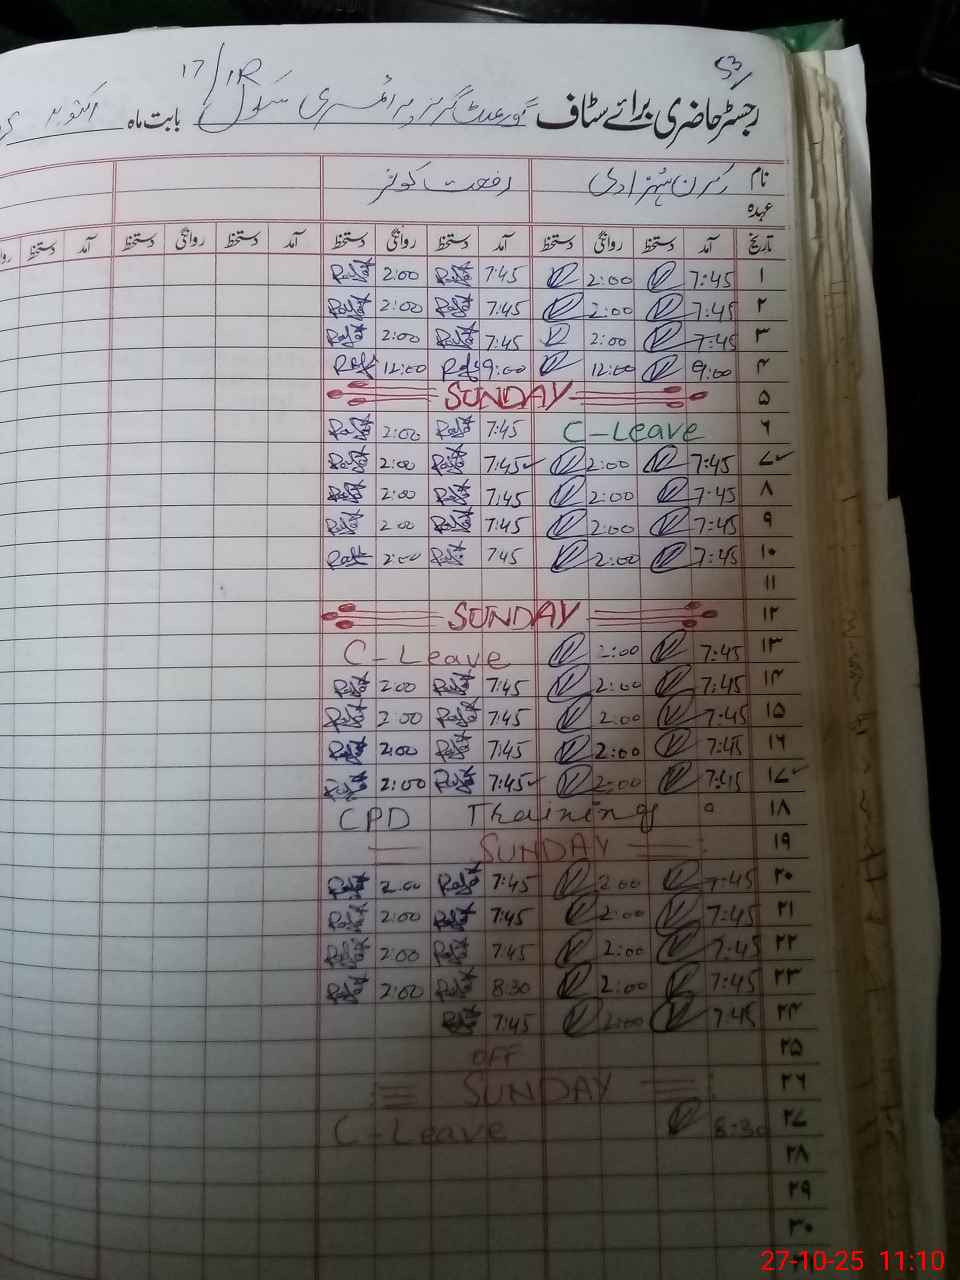 53/
17/1R
رجسٹر حاضری برائے سٹاف گورنمنٹ گرلز پرائمری سکول بابت ماہ اکتوبر
نام شہزادی رفعت کوثر
عہدہ
تاریخ آمد دستخط روانگی دستخط آمد دستخط روانگی دستخط آمد دستخط روانگی دستخط آمد دستخط
۱ 7:45 2:00 7:45 Rafat 2:00 Rafat
۲ 7:45 2:00 7:45 Rafat 2:00 Rafat
۳ 7:45 2:00 7:45 Rafat 2:00 Rafat
۴ 9:00 12:00 9:00 Rafat 12:00 Rafat
۵ SUNDAY
۶ C-Leave 7:45 Rafat 2:00 Rafat
۷ ✓ 7:45 2:00 7:45 ✓ Rafat 2:00 Rafat
۸ 7:45 2:00 7:45 Rafat 2:00 Rafat
۹ 7:45 2:00 7:45 Rafat 2:00 Rafat
۱۰ 7:45 2:00 7:45 Rafat 2:00 Rafat
۱۱
۱۲ SUNDAY
۱۳ 7:45 2:00 C-Leave
۱۴ 7:45 2:00 7:45 Rafat 2:00 Rafat
۱۵ 7:45 2:00 7:45 Rafat 2:00 Rafat
۱۶ 7:45 2:00 7:45 Rafat 2:00 Rafat
۱۷ ✓ 7:45 2:00 7:45 ✓ Rafat 2:00 Rafat
۱۸ CPD Training
۱۹ SUNDAY
۲۰ 7:45 2:00 7:45 Rafat 2:00 Rafat
۲۱ 7:45 2:00 7:45 Rafat 2:00 Rafat
۲۲ 7:45 2:00 7:45 Rafat 2:00 Rafat
۲۳ 7:45 2:00 8:30 Rafat 2:00 Rafat
۲۴ 7:45 2:00 7:45 Rafat
۲۵ OFF
۲۶ SUNDAY
۲۷ 8:30 C-Leave
۲۸
۲۹
۳۰
27-10-25 11:10